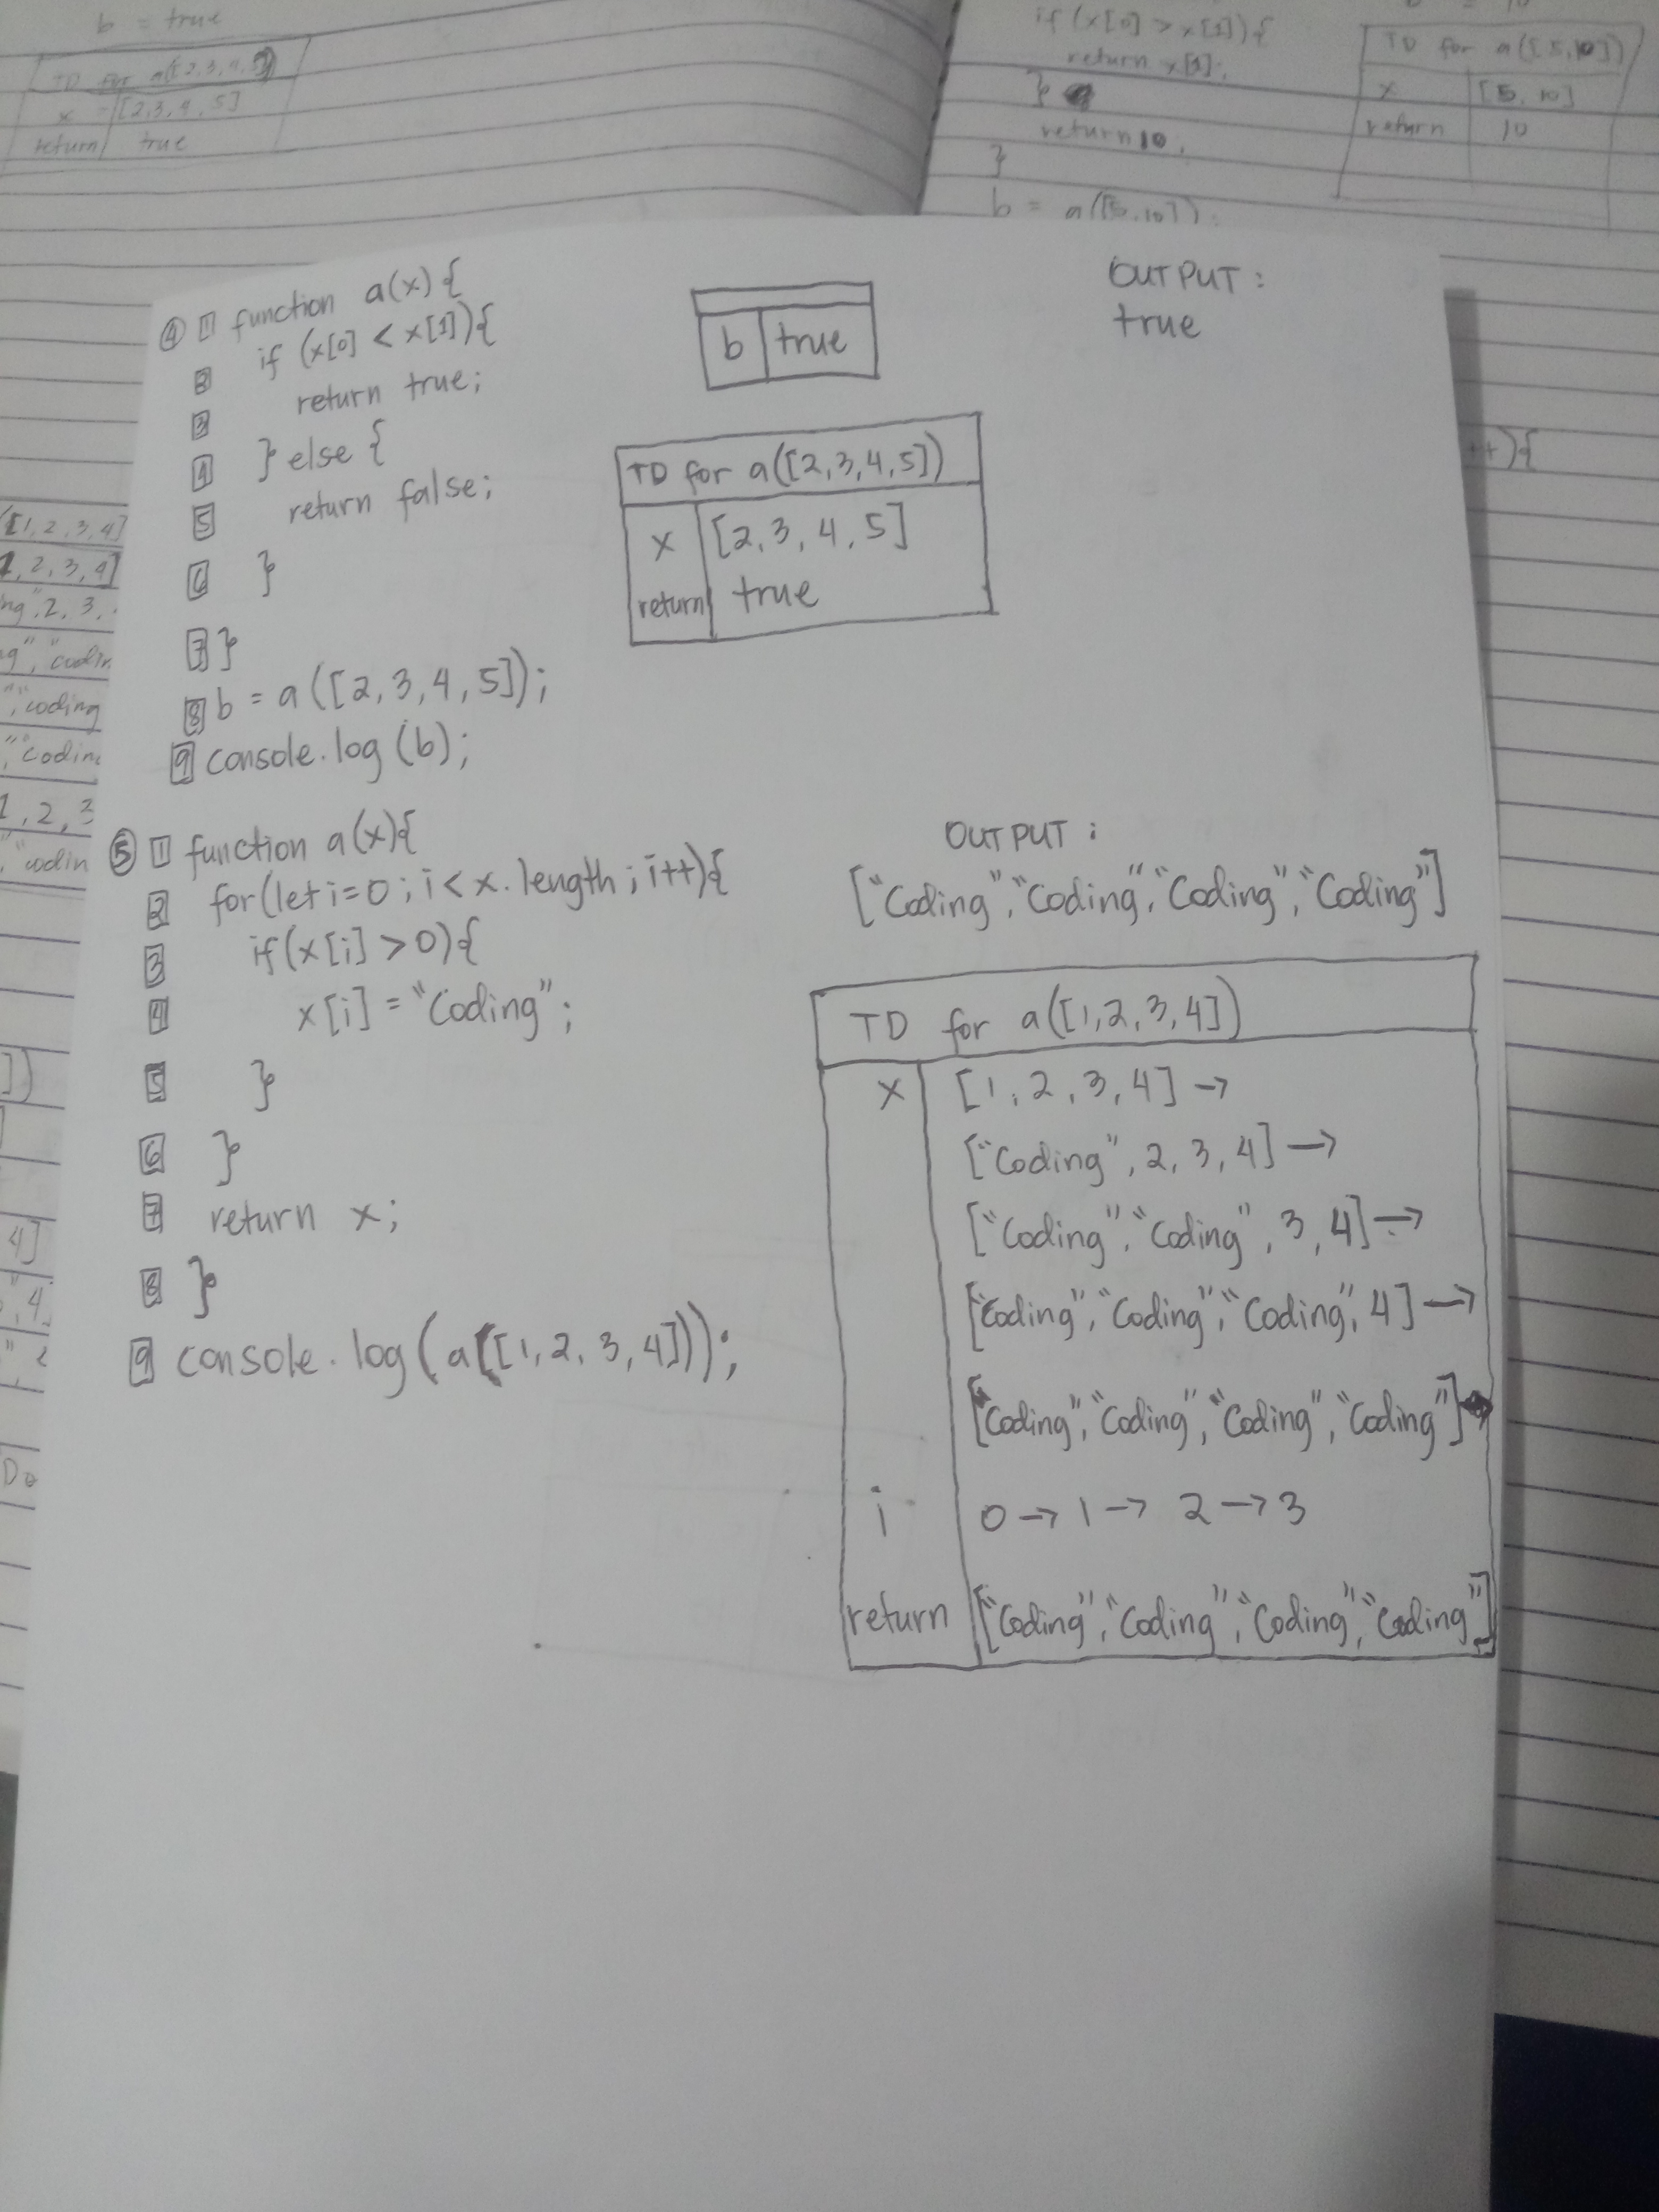 b = true
TD for a([2,3,4,5])
x = [2,3,4,5]
return true
if (x[0] > x[1]){
return x[1];
}
return 10;
}
b = a([5,10]);
TD for a([5,10])
x [5, 10]
return 10
④ 1 function a(x){
2 if (x[0] < x[1]){
3 return true;
4 } else {
5 return false;
6 }
7 }
8 b = a([2,3,4,5]);
9 console.log(b);
b true
TD for a([2,3,4,5])
x [2,3,4,5]
return true
OUTPUT:
true
++){
[1,2,3,4]
1,2,3,4]
ng",2,3,
g","codin
","coding
","codin
1,2,3
"codin
])
4]
⑤ 1 function a(x){
2 for(let i=0; i< x.length; i++){
3 if(x[i] >0){
4 x[i] = "Coding";
5 }
6 }
7 return x;
8 }
9 console.log(a([1,2,3,4]));
OUTPUT:
["Coding","Coding","Coding","Coding"]
TD for a([1,2,3,4])
x [1,2,3,4] →
["Coding",2,3,4] →
["Coding","Coding",3,4] →
["Coding","Coding","Coding",4] →
["Coding","Coding","Coding","Coding"]
i 0 → 1 → 2 → 3
return ["Coding","Coding","Coding","Coding"]